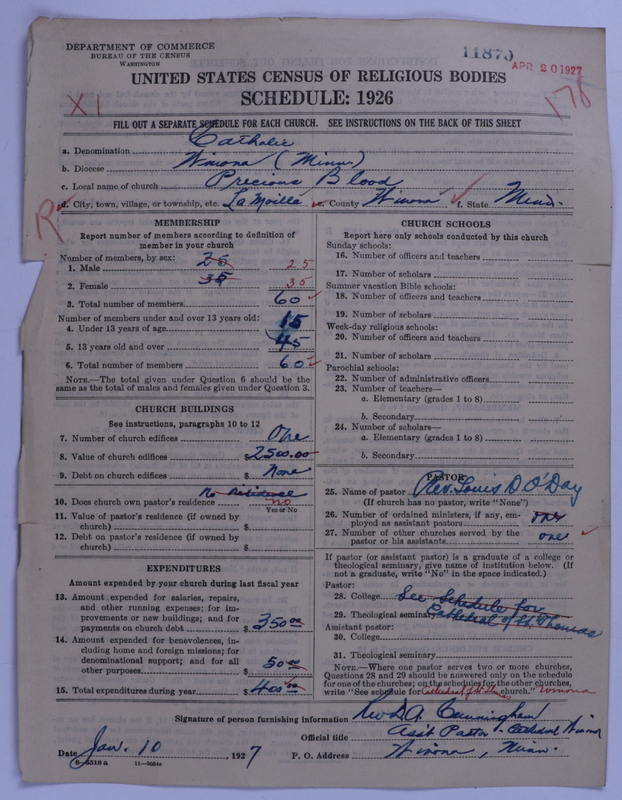 DEPARTMENT OF COMMERCE
BUREAU OF THE CENSUS
WASHINGTON
11870
APR 20 1927
UNITED STATES CENSUS OF RELIGIOUS BODIES
SCHEDULE: 1926
X1
176
FILL OUT A SEPARATE SCHEDULE FOR EACH CHURCH. SEE INSTRUCTIONS ON THE BACK OF THIS SHEET
a. Denomination Catholic
b. Diocese Winona (Minn)
c. Local name of church Precious Blood
d. City, town, village, or township, etc. La Moille e. County Winona f. State Minn.
R
MEMBERSHIP
Report number of members according to definition of
member in your church
Number of members, by sex:
1. Male 25 25
2. Female 35 35
3. Total number of members 60
Number of members under and over 13 years old:
4. Under 13 years of age 15
5. 13 years old and over 45
6. Total number of members 60
NOTE.—The total given under Question 6 should be the
same as the total of males and females given under Question 3.
CHURCH BUILDINGS
See instructions, paragraphs 10 to 12
7. Number of church edifices One
8. Value of church edifices $2500.00
9. Debt on church edifices $ None
No Residence
10. Does church own pastor's residence no
Yes or No
11. Value of pastor's residence (if owned by
church) $
12. Debt on pastor's residence (if owned by
church) $
EXPENDITURES
Amount expended by your church during last fiscal year
13. Amount expended for salaries, repairs,
and other running expenses; for im-
provements or new buildings; and for
payments on church debt $ 350.00
14. Amount expended for benevolences, in-
cluding home and foreign missions; for
denominational support; and for all
other purposes $ 50.00
15. Total expenditures during year $ 400.00
CHURCH SCHOOLS
Report here only schools conducted by this church
Sunday schools:
16. Number of officers and teachers
17. Number of scholars
Summer vacation Bible schools:
18. Number of officers and teachers
19. Number of scholars
Week-day religious schools:
20. Number of officers and teachers
21. Number of scholars
Parochial schools:
22. Number of administrative officers
23. Number of teachers—
a. Elementary (grades 1 to 8)
b. Secondary
24. Number of scholars—
a. Elementary (grades 1 to 8)
b. Secondary
PASTOR
25. Name of pastor Rev. Louis D. O'Day
(If church has no pastor, write "None")
26. Number of ordained ministers, if any, em-
ployed as assistant pastors one
27. Number of other churches served by the
pastor or his assistants one
If pastor (or assistant pastor) is a graduate of a college or
theological seminary, give name of institution below. (If
not a graduate, write "No" in the space indicated.)
Pastor:
28. College See Schedule for
29. Theological seminary Cathedral of St. Thomas
Assistant pastor:
30. College
31. Theological seminary
NOTE.—Where one pastor serves two or more churches,
Questions 28 and 29 should be answered only on the schedule
for one of the churches; on the schedules for the other churches,
write "See schedule for Cathedral of St. Thomas church." Winona
Signature of person furnishing information Rev D.A. Cunningham
Official title Ass't Pastor Cathedral Winona
Date Jan. 10, 1927 P. O. Address Winona, Minn.
8-5518a 11-9084a